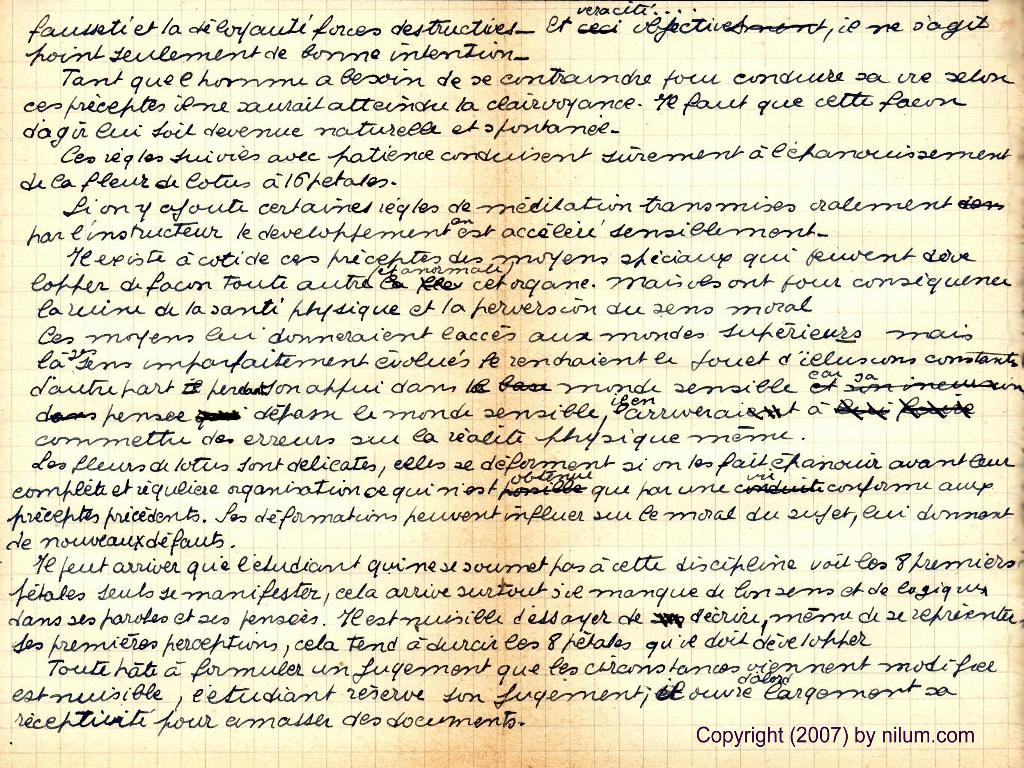 veracité....
fausseté et la déloyauté forces destructives_ Et ceci objectivement, il ne s'agit
point seulement de bonne intention_
Tant que l'homme a besoin de se contraindre pour conduire sa vie selon
ces préceptes il ne saurait atteindre la clairvoyance. Il faut que cette façon
d'agir lui soit devenue naturelle et spontanée_
Ces règles suivies avec patience conduisent sûrement à l'épanouissement
de la fleur de lotus à 16 pétales.
Si on y ajoute certaines règles de méditation transmises oralement dans
par l'instructeur le developpement en est accéléré sensiblement_
Il existe à coté de ces préceptes des moyens spéciaux qui peuvent déve
(et anormale)
lopper de façon toute autre la cet organe. Mais ils ont pour conséquence
la ruine de la santé physique et la perversion du sens moral
Ces moyens lui donneraient l'accès aux mondes supérieurs mais
là ses sens imparfaitement évolués le rendraient le jouet d'illusions constantes
car sa
d'autre part il perdant son appui dans le base monde sensible et son
dans pensée qui dépasse le monde sensible, il en arriveraient à faire
commettre des erreurs sur la réalité physique même.
Les fleurs de lotus sont délicates, elles se déforment si on les fait épanouir avant leur
obtenue vie
complète et régulière organisation ce qui n'est possible que par une conduite conforme aux
préceptes précédents. Ses déformations peuvent influer sur le moral du sujet, lui donnent
de nouveaux défauts.
Il peut arriver que l'étudiant qui ne se soumet pas à cette discipline voit les 8 premiers
pétales seuls se manifester, cela arrive surtout s'il manque de bon sens et de logique
dans ses paroles et ses pensées. Il est nuisible d'essayer de décrire, même de se représenter
ses premières perceptions, cela tend à durcir les 8 pétales qu'il doit développer
Toute hâte à formuler un jugement que les circonstances viennent modifier
d'abord
est nuisible, l'étudiant réserve son jugement, il ouvre largement sa
réceptivité pour amasser des documents.
Copyright (2007) by nilum.com